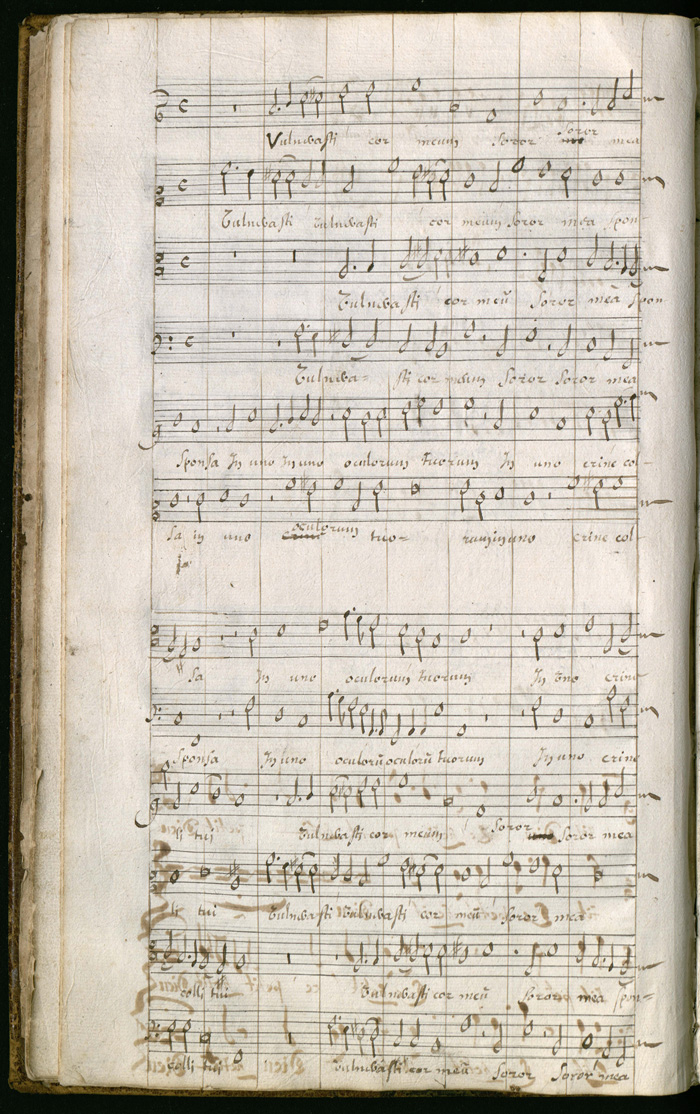 Vulnerasti cor meum Soror Soror mea
Vulnerasti Vulnerasti cor meum Soror mea spon-
Vulnerasti cor meū Soror meā Spon
Vulnera- sti cor meum Soror Soror mea
Sponsa In uno In uno oculorum tuorum In uno crine col-
sa in uno oculorum tuo- rum in uno crine col-
Sa In uno oculorum tuorum In uno crine
Sponsa In uno oculorū oculorū tuorum In uno crine
li tui Vulnerasti cor meum Soror Soror mea
li tui Vulnerasti Vulnerasti cor meū Soror mea
colli tui Vulnerasti cor meū Soror mea spon-
colli tui Vulnerasti cor meū Soror Soror mea